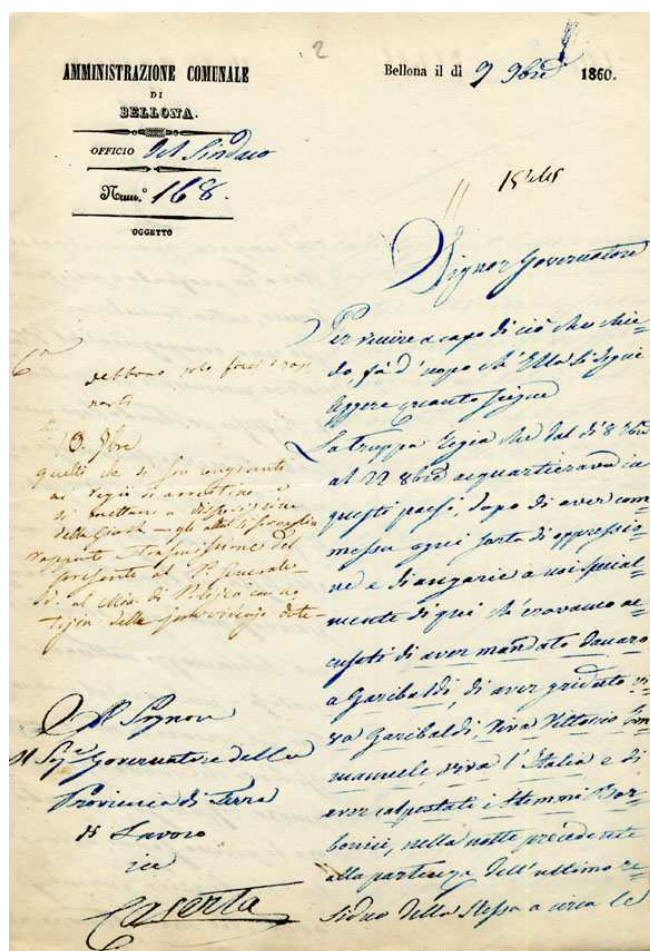 2
AMMINISTRAZIONE COMUNALE
DI
BELLONA.
OFFICIO del Sindaco
Num.° 168.
OGGETTO
Bellona il dì 9 9bre 1860.
Signor Governatore
Per venire a capo di ciò che chie=
do, fa d'uopo ch'Ella si degni
leggere quanto siegue
La truppa regia che dal dì 8 8bre
al 22 8bre acquartierava in
questi paesi, dopo di aver com
messa ogni sorta di oppressio=
ne e di angarie a noi special=
mente di quei ch'eravamo ac
cusati di aver mandato danaro
a Garibaldi, di aver gridato vi
va Garibaldi, viva Vittorio Em
manuele, viva l'Italia e di
aver calpestati i Stemmi Bor
bonici, nella notte precedente
alla partenza dell'ultimo re=
siduo della stessa a circa le
debbono solo
13. 9bre
quelli che si son congiunti
ai regii si arrestino e
si mettano a disposizione
della
rapporto trasmissione del
presente al P. Generale
di Polizia con no
tizia delle provvidenze date
Al Signore
Il Sigr Governatore della
Provincia di Terra
di Lavoro
in
Caserta